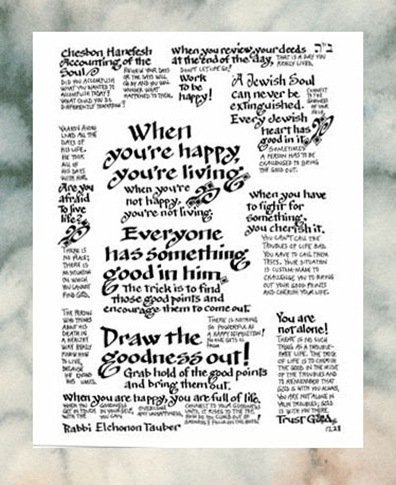 Cheshon Hanefesh
Accounting of the
Soul:
DID YOU ACCOMPLISH
WHAT YOU WANTED TO
ACCOMPLISH TODAY?
WHAT COULD YOU DO
DIFFERENTLY TOMORROW?
REVIEW YOUR DAYS
OR THE DAYS WILL
GO BY AND YOU WILL
WONDER WHAT
HAPPENED TO THEM.
When you review your deeds
at the end of the day,
THAT IS A DAY YOU
REALLY LIVED.
DON'T LET LIFE GO!
Work
To be
happy!
ב"ה
A Jewish Soul
can never be
extinguished.
Every Jewish
heart has
good in it.
SOMETIMES
A PERSON HAS TO BE
CHALLENGED TO BRING
THE GOOD OUT.
CONNECT
TO THE
GOODNESS
OF YOUR
When
you're happy,
you're living.
When you're
not happy,
you're not living.
LIVED ALL THE
DAYS OF
HIS LIFE.
HE TOOK
ALL OF
HIS DAYS
WITH HIM.
Are you
afraid
To live
life?
THERE IS
NO PLACE;
THERE IS
NO SITUATION
IN WHICH
YOU CANNOT
FIND GOD.
THE PERSON
WHO THINKS
ABOUT HIS
DEATH IN
A HEALTHY
WAY REALLY
KNOWS HOW
TO LIVE,
BECAUSE
HE
HIS LIMITS.
When you have
to fight for
something,
you cherish it.
YOU CAN'T CALL THE
TROUBLES OF LIFE BAD.
YOU HAVE TO CALL THEM
TESTS. YOUR SITUATION
IS CUSTOM-MADE TO
CHALLENGE YOU TO BRING
OUT YOUR GOOD POINTS
AND CHERISH YOUR LIFE.
Everyone
has something
good in him.
The trick is to find
those good points and
encourage them to come out.
Draw the
goodness out!
Grab hold of the good points
and bring them out.
THERE IS NOTHING
SO POWERFUL AS
A HAPPY DISPOSITION!
NO ONE GETS IT
FROM
You are
not alone!
THERE IS NO SUCH
THING AS A TROUBLE-
FREE LIFE. THE TRICK
OF LIFE IS TO CHERISH
THE GOOD IN THE MIDST
OF THE TROUBLES AND
TO REMEMBER THAT
GOD IS WITH YOU ALWAYS,
YOU ARE NOT ALONE IN
YOUR TROUBLES; GOD
IS WITH YOU THERE.
Trust God.
When you are happy, you are full of life.
WHEN YOU
GET IN TOUCH
WITH THE
GOODNESS
IN YOURSELF,
YOU CAN
OVERCOME
ANY UNHAPPINESS.
CONNECT TO YOUR GOODNESS
UNTIL IT RISES TO THE TOP.
HOW DO YOU CLIMB OUT OF
SADNESS? FOCUS ON THE GOOD!
Rabbi Elchonon Tauber